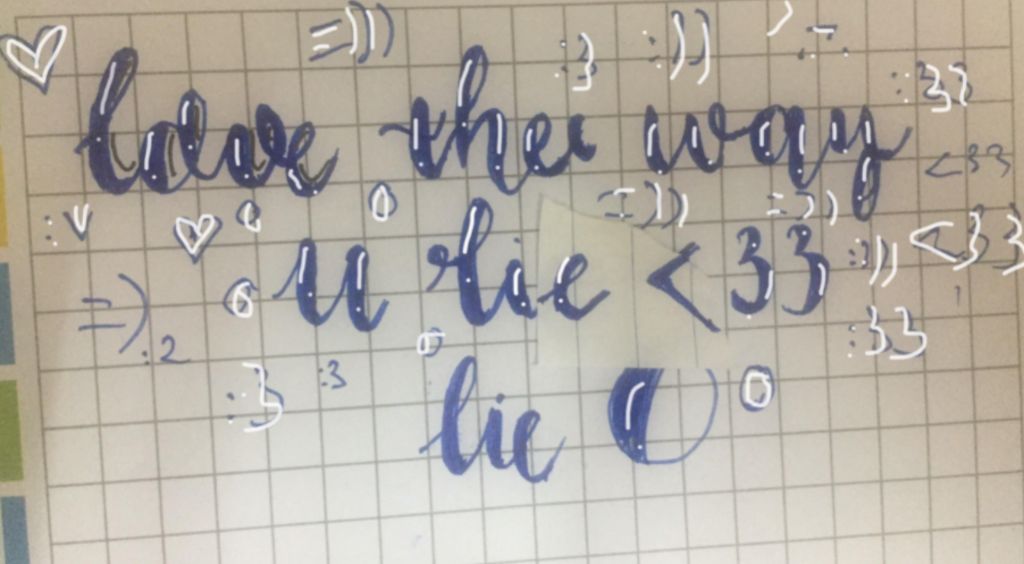 =)))
:} :))
love the way :33
<33
:v =)) =))
u lie <33 :)) <33
=) :2 :33
:} :3
lie